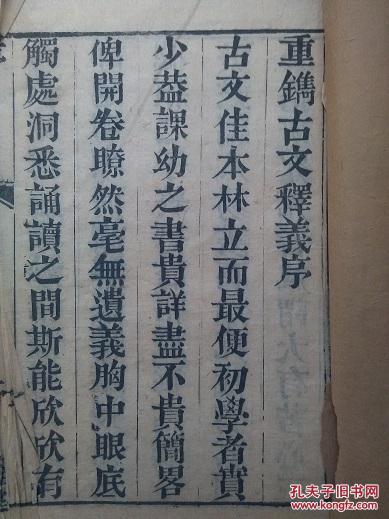 重鐫古文釋義序
古文佳本林立而最便初學者實
少葢課幼之書貴詳盡不貴簡畧
俾開卷瞭然毫無遺義胸中眼底
觸處洞悉誦讀之間斯能欣欣有
孔夫子旧书网
www.kongfz.com